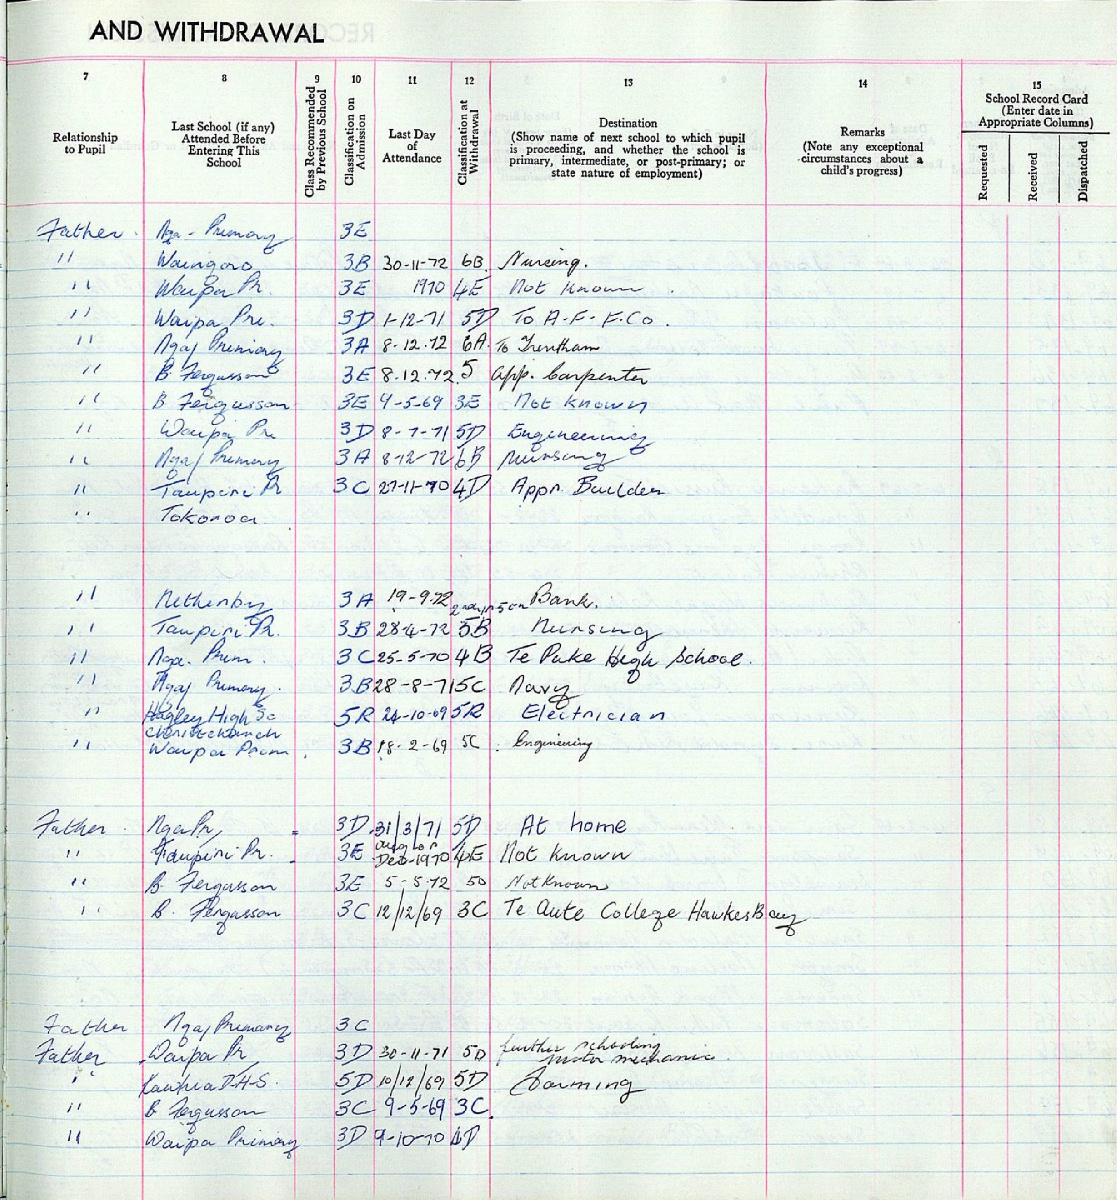 AND WITHDRAWAL
7 8 9 10 11 12 13 14 15
Relationship to Pupil
Last School (if any) Attended Before Entering This School
Class Recommended by Previous School
Classification on Admission
Last Day of Attendance
Classification at Withdrawal
Destination (Show name of next school to which pupil is proceeding, and whether the school is primary, intermediate, or post-primary; or state nature of employment)
Remarks (Note any exceptional circumstances about a child's progress)
School Record Card (Enter date in Appropriate Columns)
Requested Received Dispatched
Father Nga-Primary 3E
" Waingaro 3B 30-11-72 6B Nursing.
" Waipa Pr. 3E 1970 4E Not Known.
" Waipa Pri. 3D 1-12-71 5D To A.F.F.Co.
" Nga/ Primary 3A 8.12.72 6A To Trentham
" B. Fergusson 3E 8.12.72 5 App. Carpenter
" B Fergusson 3E 9-5-69 3E Not Known
" Waipa Pr. 3D 8-7-71 5D Engineering
" Nga/ Primary 3A 8-12-72 6B Nursing
" Taupiri Pr 3C 27-11-70 4D Appr. Builder
" Tokoroa
" Netherby 3A 19-9-72 Bank.
" Taupiri Pr. 3B 28-4-72 5B Nursing
" Nga. Prim. 3C 25-5-70 4B Te Puke High School.
" Nga/ Primary. 3B 28-8-71 5C Navy
" Hagley High Sc 5R 24-10-69 5R Electrician
Christchurch
" Waipa Prim 3B 18-2-69 5C Engineering
Father Nga Pr, 3D 31/3/71 5D At home
" Taupiri Pr. 3E Aug or Dec-1970 4E Not Known
" B. Fergusson 3E 5-5-72 5D Not Known
" B. Fergusson 3C 12/12/69 3C Te Aute College Hawkes Bay
Father Nga/ Primary 3C
Father Waipa Pr, 3D 30-11-71 5D further schooling
motor mechanic.
" Kawhia D.H.S. 5D 10/12/69 5D Farming
" B Fergusson 3C 9-5-69 3C.
" Waipa Primary 3D 9-10-70 4D